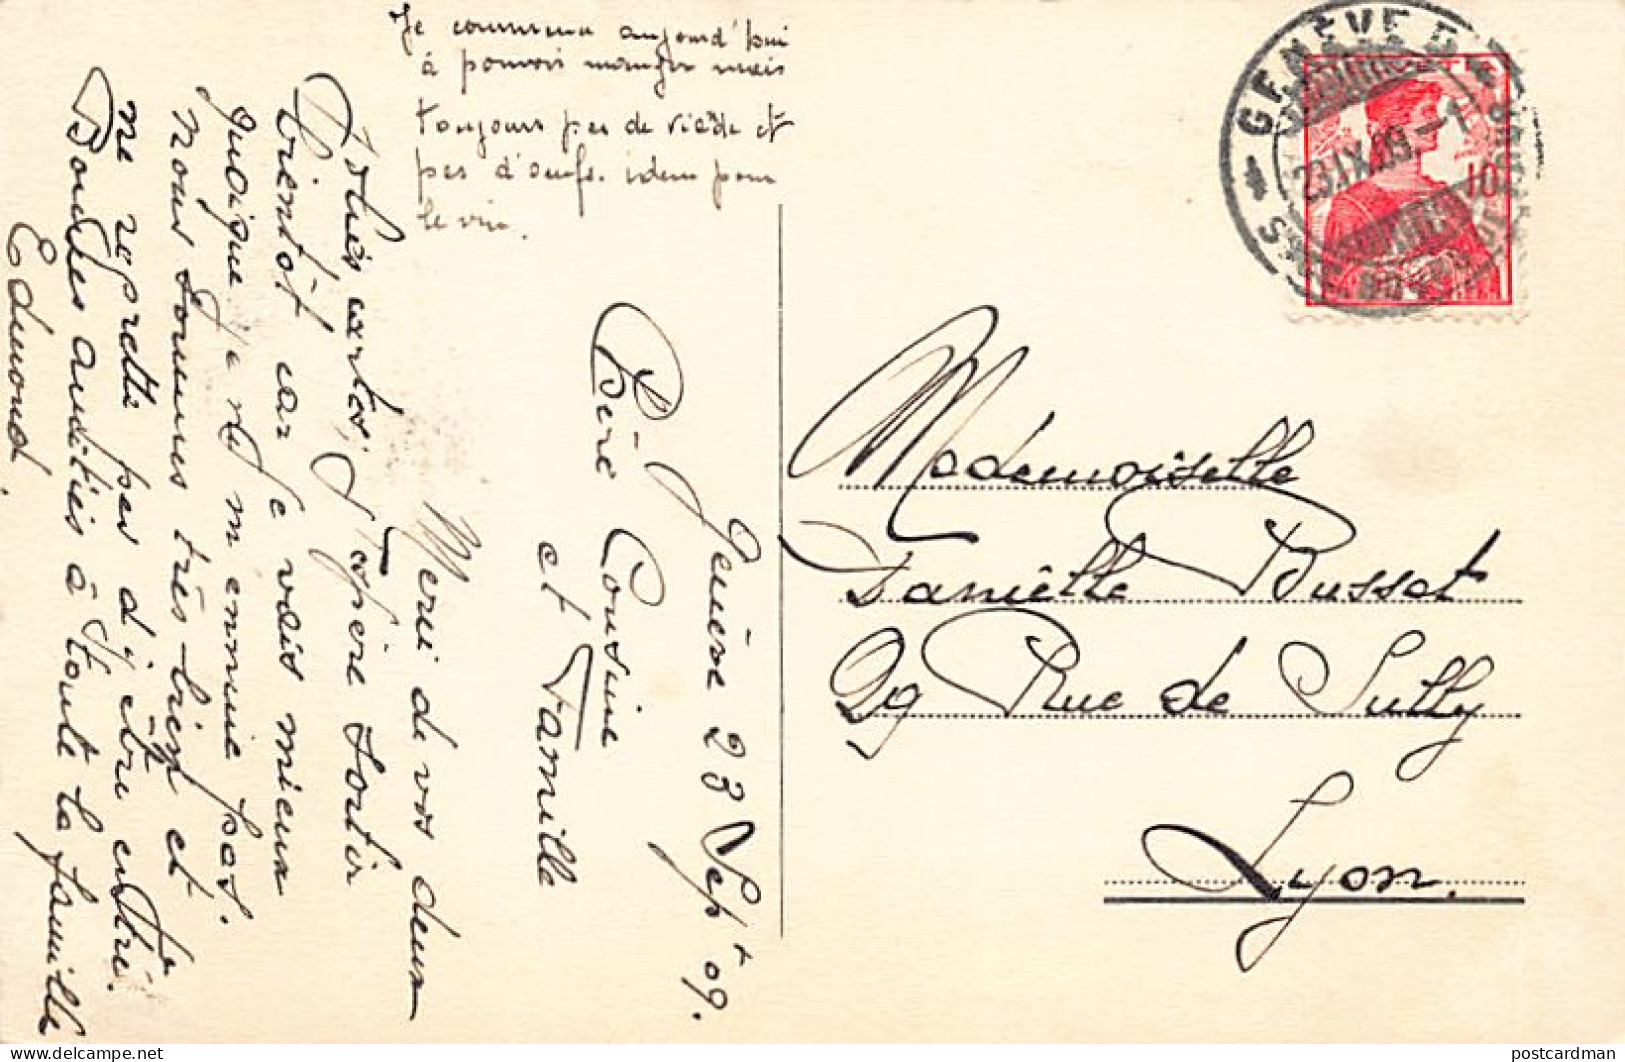 Genève 23 Sept 09.
Chère Cousine
et Famille
Merci de vos deux
jolies cartes, J'espère sortir
bientôt car je vais mieux
quoique je ne m'ennuie pas.
Nous sommes très bien et
ne regrette pas d'y être entré.
Bonnes amitiés à toute la famille
Edmond.
Je commence aujourd'hui
à pouvoir manger mais
toujours pas de viande et
pas d'oeufs. idem pour
le vin.
GENÈVE
23.IX.09.-1
10
Mademoiselle
Danielle Bussat
29 Rue de Sully
Lyon.
postcardman